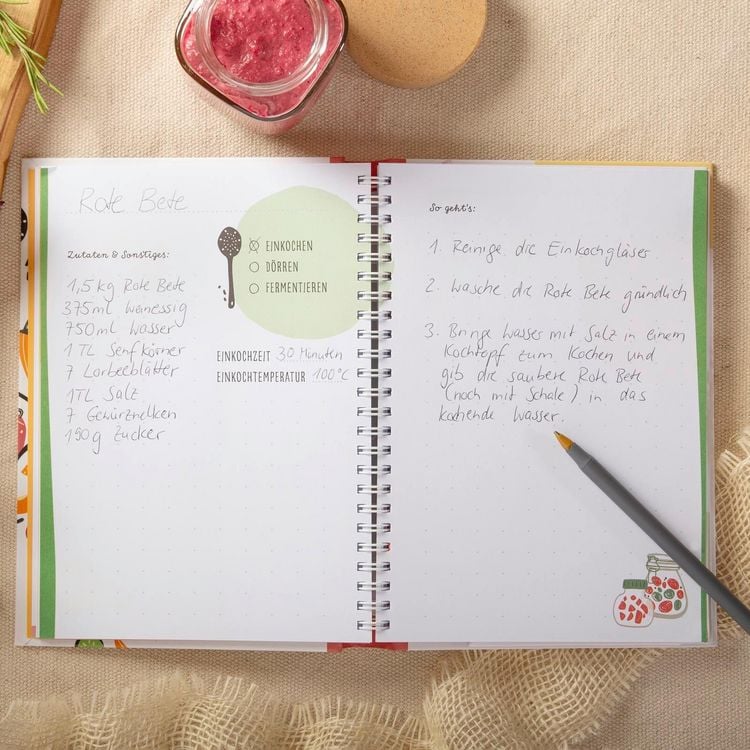 Rote Bete
Zutaten & Sonstiges:
1,5 kg Rote Bete
375ml Weinessig
750ml Wasser
1 TL Senfkörner
7 Lorbeeblätter
1TL Salz
7 Gewürznelken
190g Zucker
EINKOCHEN
DÖRREN
FERMENTIEREN
EINKOCHZEIT 30 Minuten
EINKOCHTEMPERATUR 100°C
So geht's:
1. Reinige die Einkochgläser
2. Wasche die Rote Bete gründlich
3. Bringe Wasser mit Salz in einem
Kochtopf zum Kochen und
gib die saubere Rote Bete
(noch mit Schale) in das
kochende Wasser.